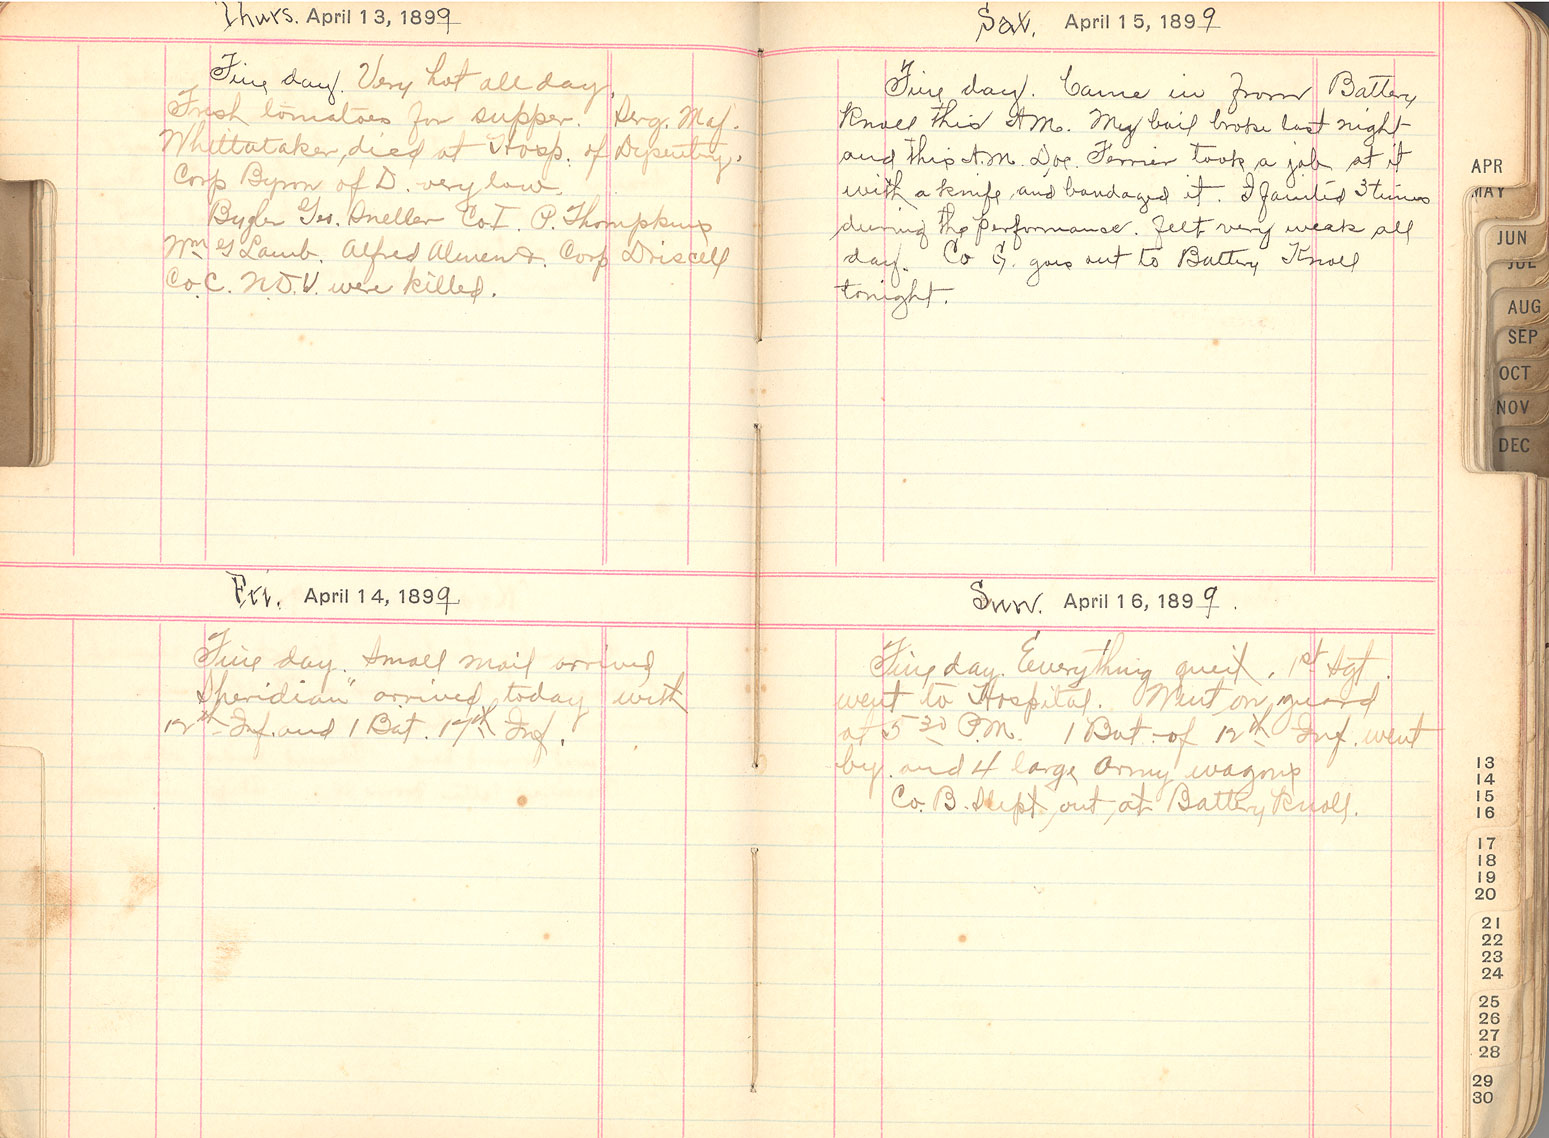 Thurs. April 13, 1899
Fine day. Very hot all day.
Fresh tomatoes for supper. Serg. Maj.
Whittataker, died at Hosp. of Dysentery.
Corp Byron of D. very low.
Bugler Geo. Sneller Co. I. P. Thompkins
Wm G Lamb. Alfred Almen Corp Driscell
Co. C. N.D.V. were killed.
Fri. April 14, 1899
Fine day. Small mail arrived
Sheridian" arrived today with
12th Inf. and 1 Bat. 17th Inf.
Sat. April 15, 1899
Fine day. Came in from Battery
Knoll this AM. My boil broke last night
and this A.M. Doc. Ferrier took a job at it
with a knife and bandaged it. I fainted 3 times
during the performance. Felt very weak all
day. Co G. goes out to Battery Knoll
tonight.
Sun. April 16, 1899.
Fine day. Everything queit. 1st Sgt.
went to Hospital. Went on guard
at 5 30 P.M. 1 Bat. of 12th Inf. went
by. and 4 large Army wagons
Co. B. Slept out at Battery Knoll.
APR
MAY
JUN
JUL
AUG
SEP
OCT
NOV
DEC
13
14
15
16
17
18
19
20
21
22
23
24
25
26
27
28
29
30